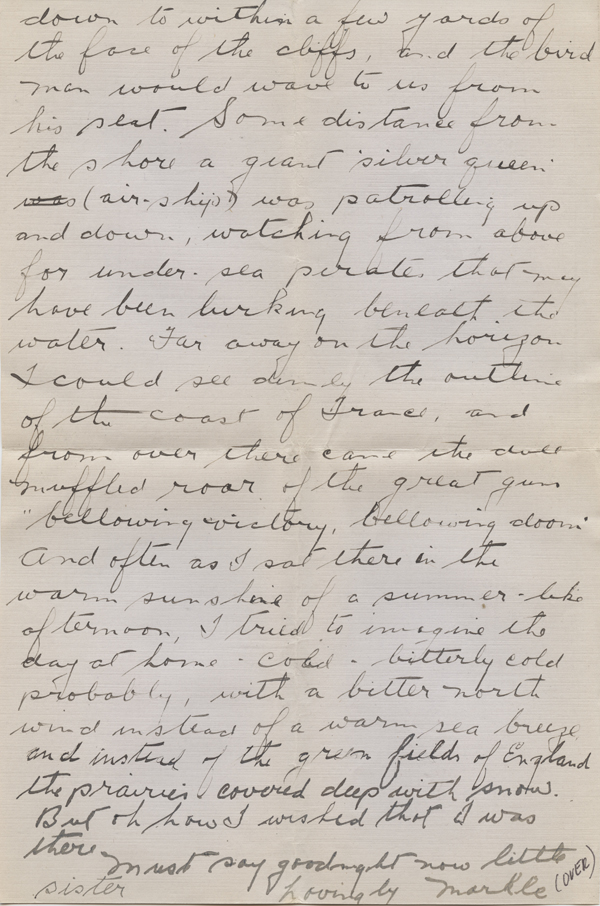 down to within a few yards of
the face of the cliffs, and the bird
man would wave to us from
his seat. Some distance from
the shore a giant "silver queen"
was (air-ship) was patrolling up
and down, watching from above
for under-sea pirates that may
have been lurking beneath the
water. Far away on the horizon
I could see dimly the outline
of the coast of France, and
from over there came the dull
muffled roar of the great guns
"bellowing victory, bellowing doom"
And often as I sat there in the
warm sunshine of a summer-like
afternoon, I tried to imagine the
day at home - cold - bitterly cold
probably, with a bitter north
wind instead of a warm sea breeze
and instead of the green fields of England
the prairies covered deep with snow.
But oh how I wished that I was
there
Must say goodnight now little
sister Lovingly Markle (OVER)